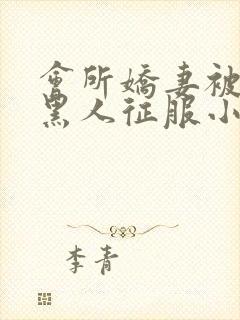 會所嬌妻被
黑人征服小
李青